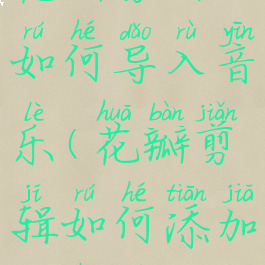 rú hé dǎo rù yīn
如何导入音
lè huā bàn jiǎn
乐(花瓣剪
jí rú hé tiān jiā
辑如何添加